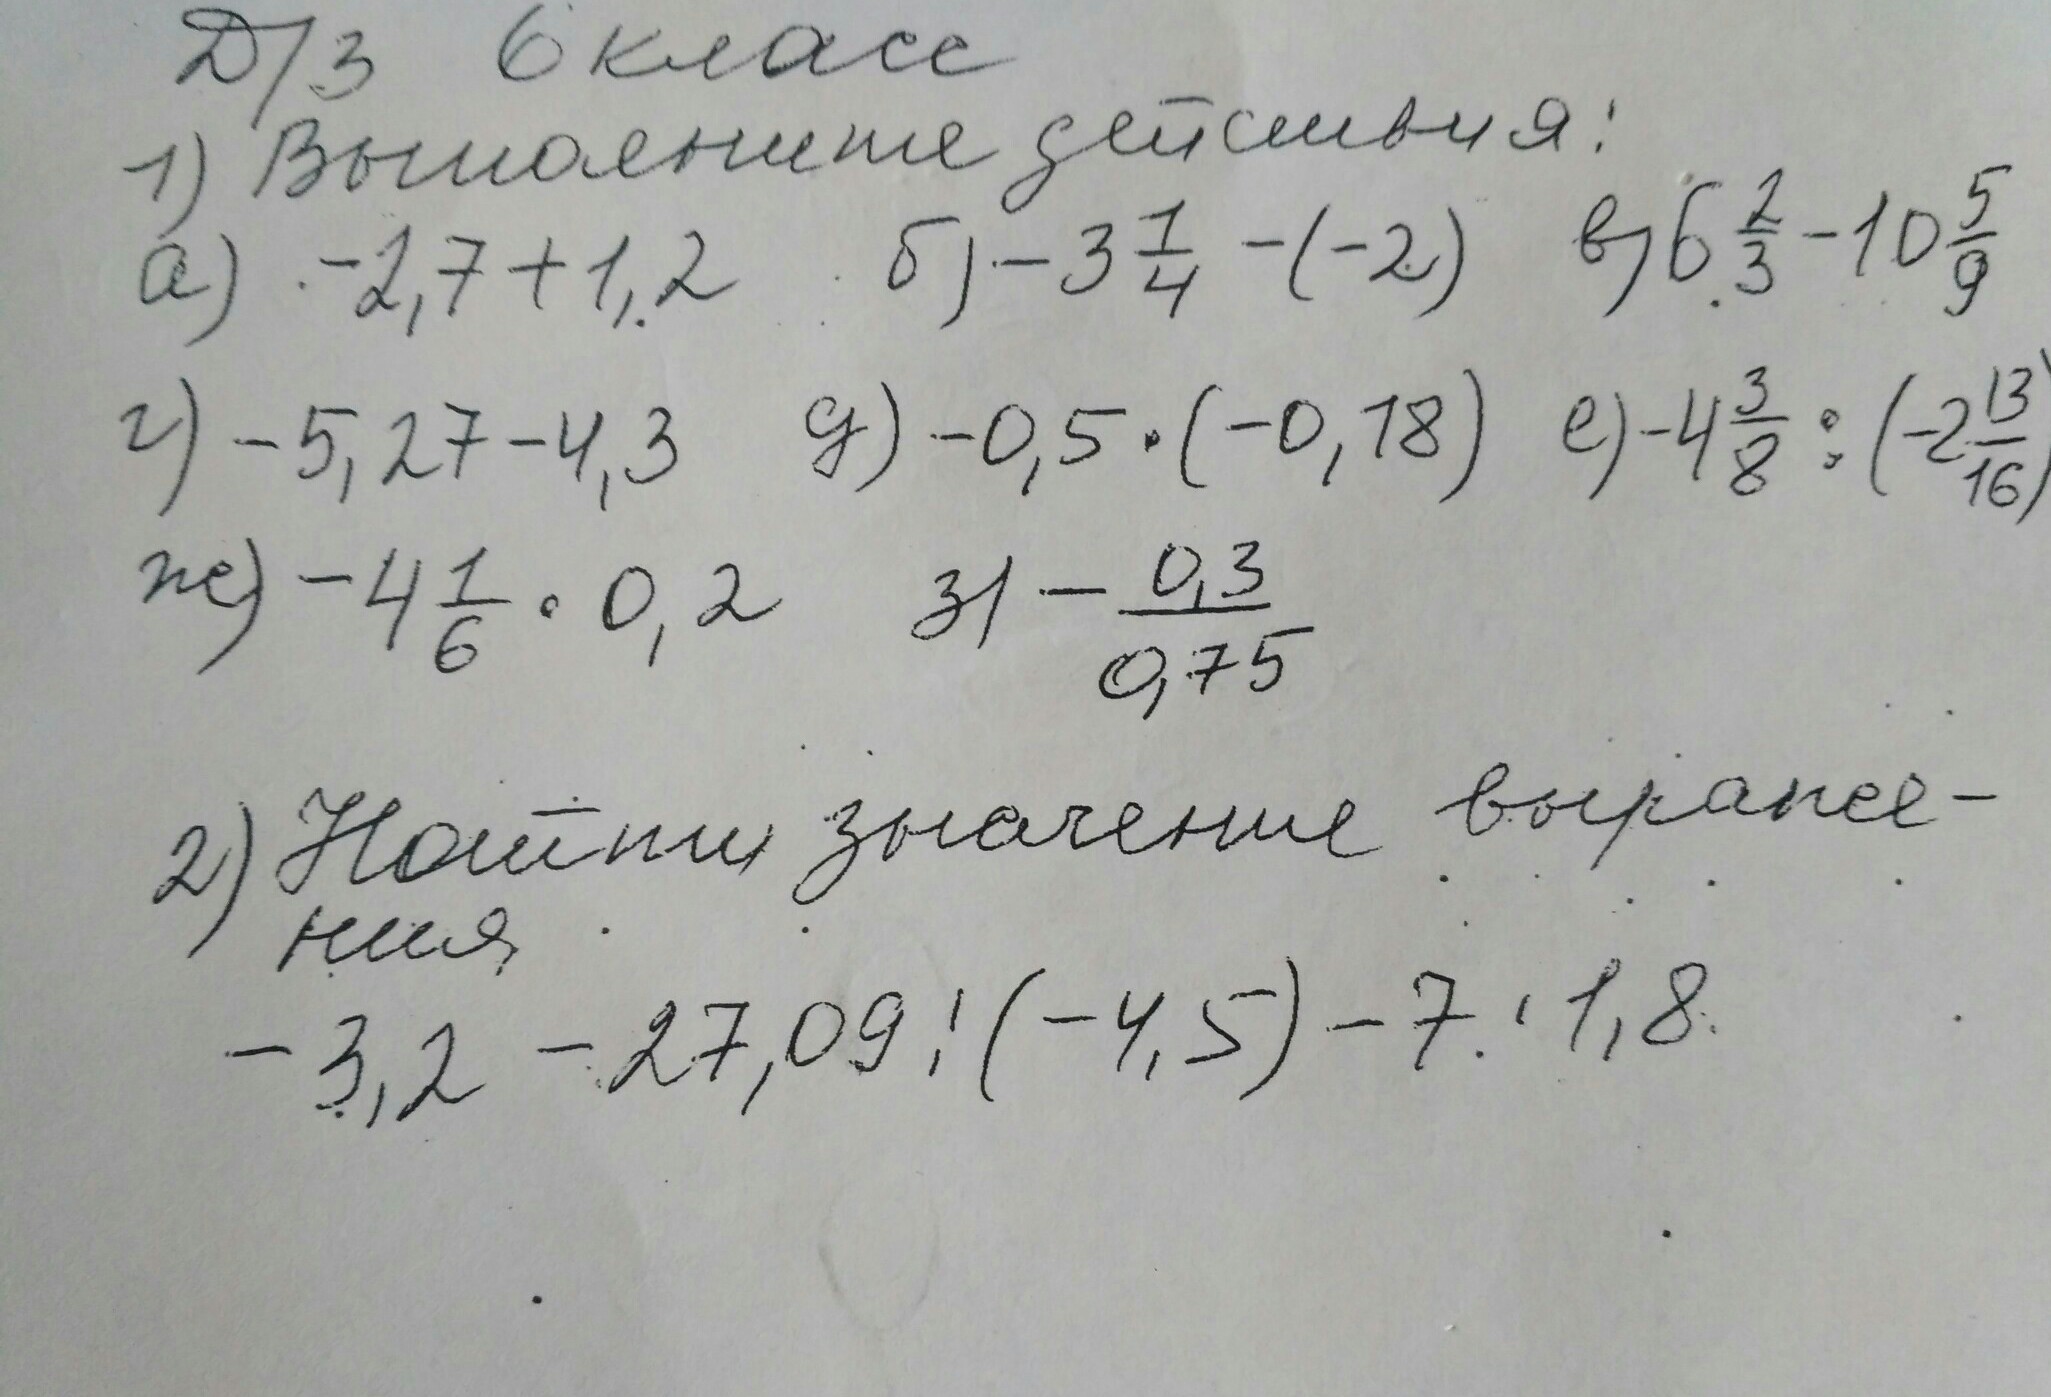 Д/З 6 класс
1) Выполните действия:
а) -2,7+1,2 б) -3 1/4 -(-2) в) 6 2/3 -10 5/9
г) -5,27-4,3 д) -0,5·(-0,18) е) -4 3/8 : (-2 13/16)
ж) -4 1/6 · 0,2 з) - 0,3/0,75
2) Найти значение выраже-
ния
-3,2 -27,09:(-4,5)-7·1,8